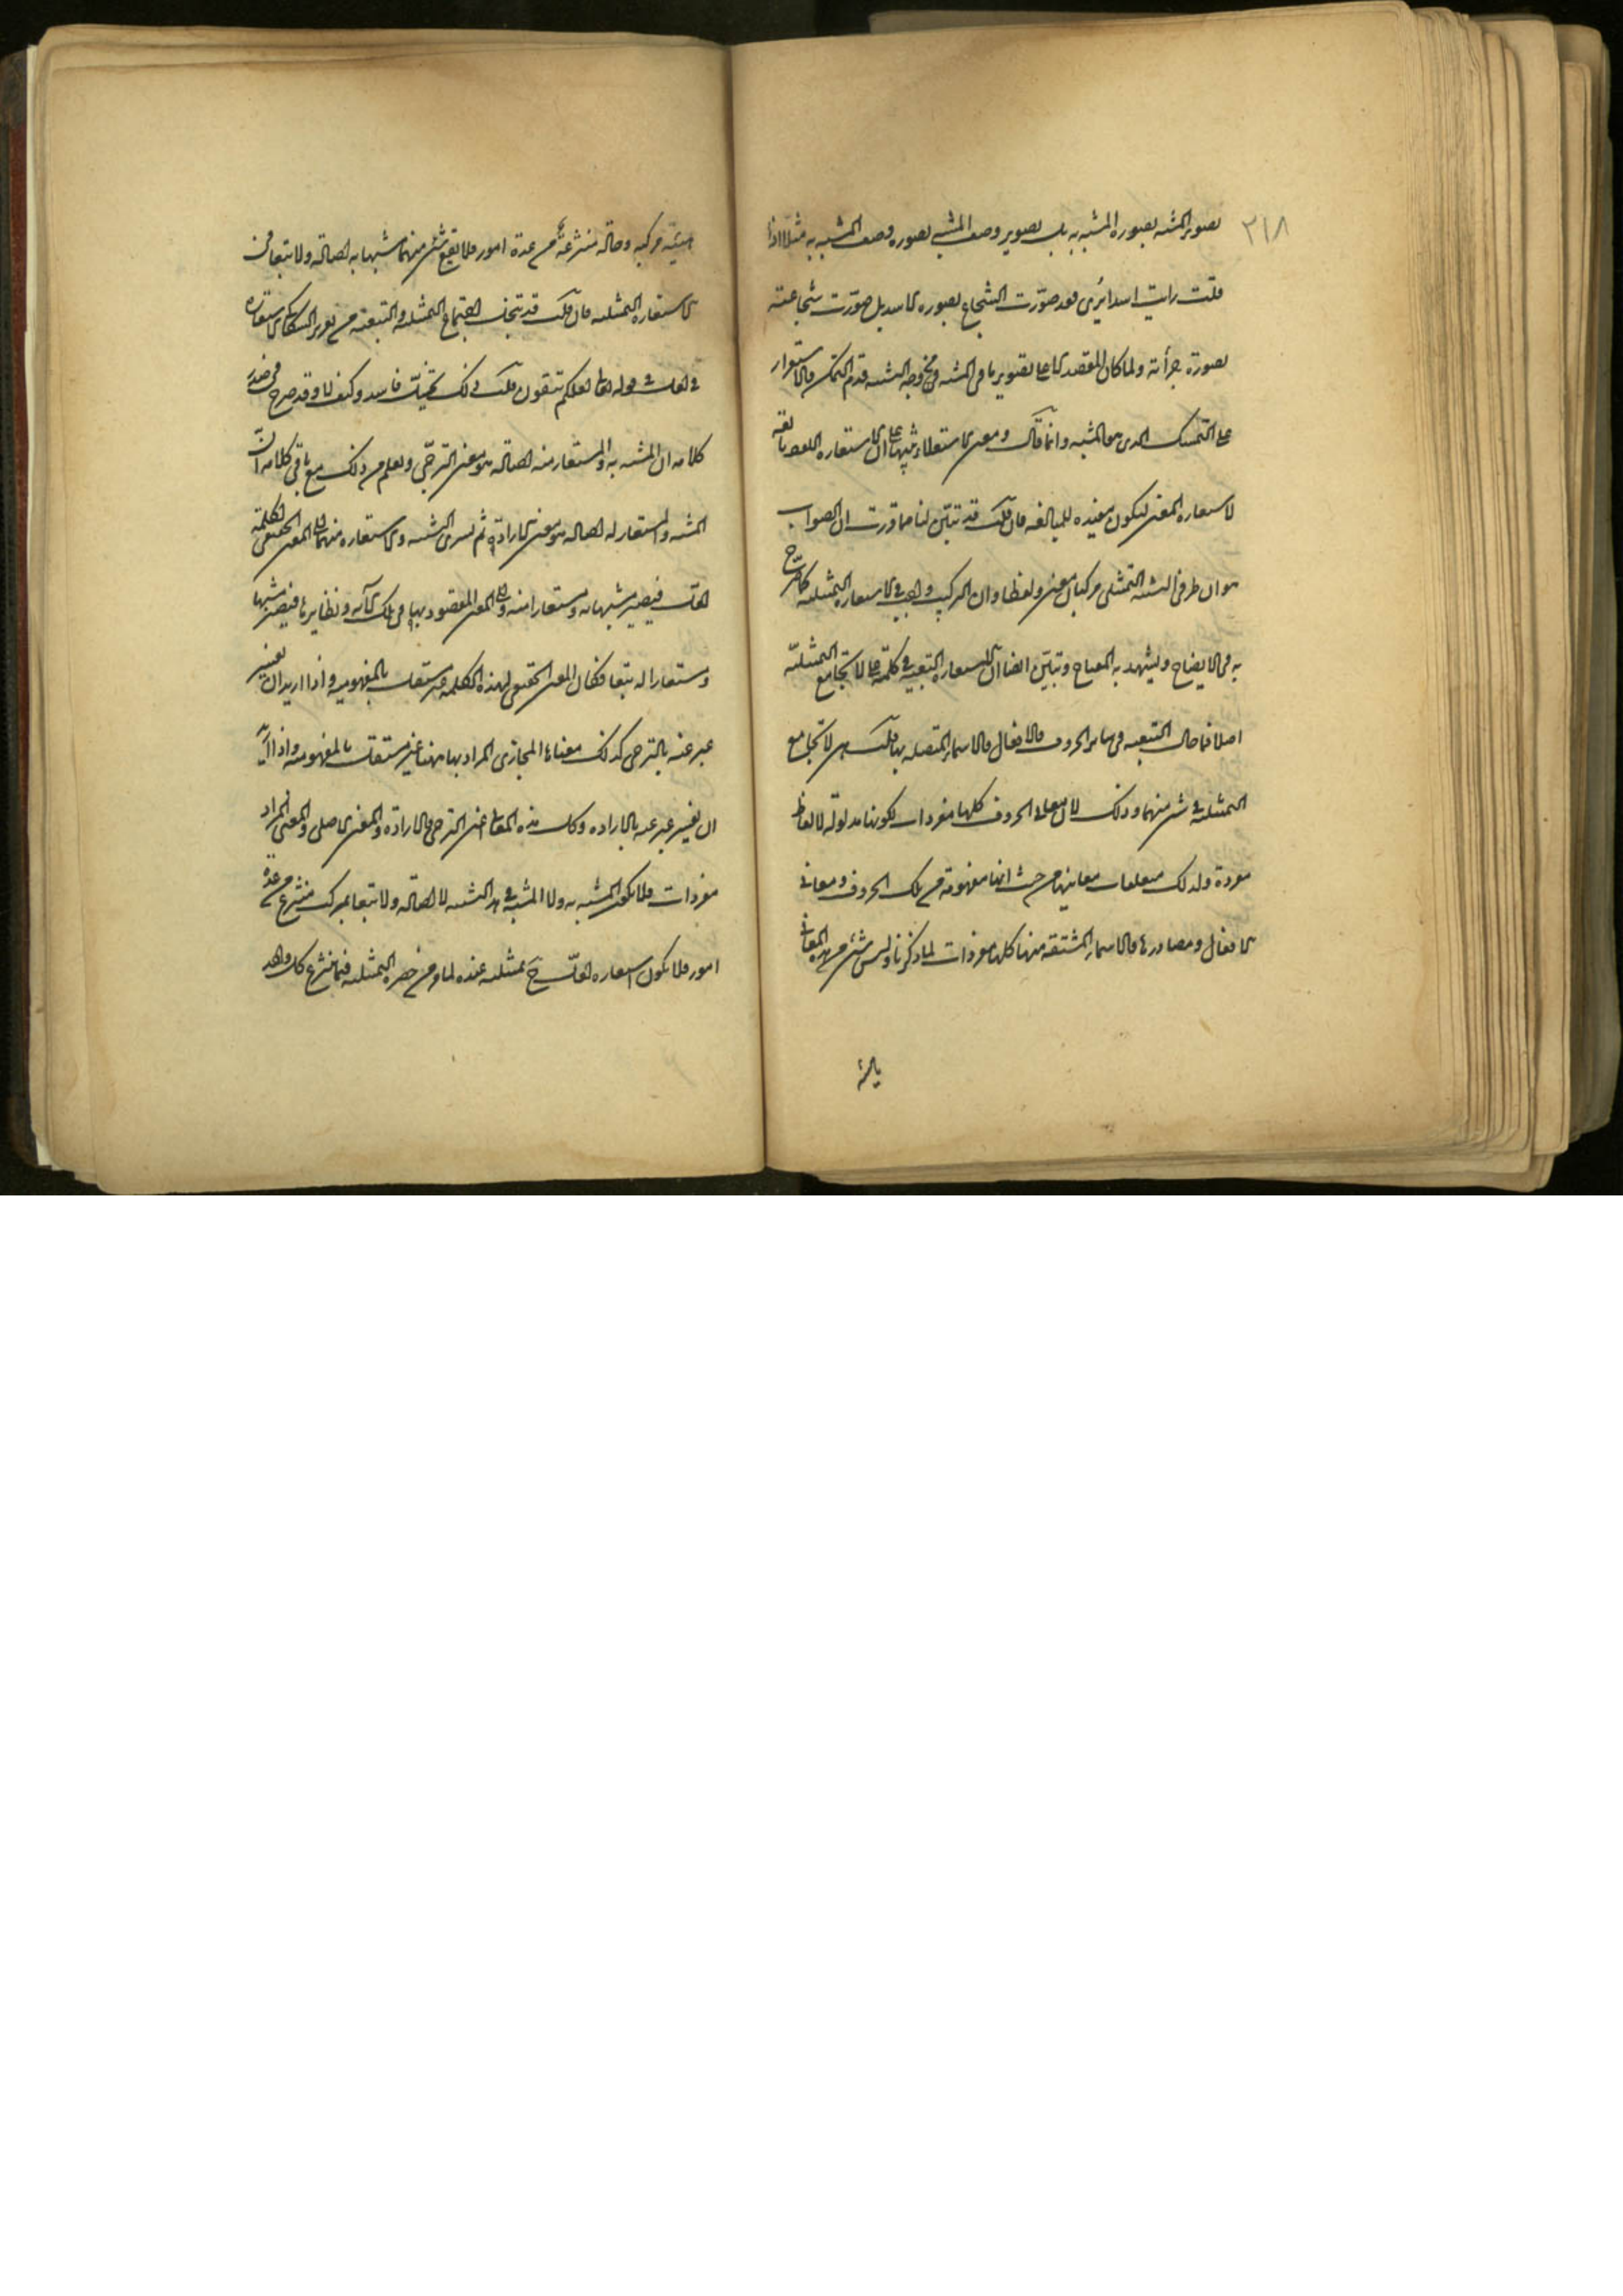 ٢١٨
تصوير المشبه بصورة المشبه به بل تصوير وصف المشبه بصورة وصف المشبه به مثلا اذا
قلت رايت اسدا يرمى فقد صوّرت الشجاع بصورة الاسد بل صوّرت شجاعته
بصورة جرأته ولما كان المقصد الاعلى تصوير ما فى المشبه من وجه الشبه قدم التمكن والاستقرار
على التمسك الذى هو المشبه وانما قال ومعنى الاستعلاء مثل لان الاستعارة اللفظ تابعة
لاستعارة المعنى لتكون مفيدة للمبالغة فان قلت قد تبيّن لنا مما قررت ان الصواب
هو ان طرفى التشبيه التمثيلى مركبان معنى ولفظا وان التركيب واجب فى الاستعارة التمثيلية كما صرّح
به فى الايضاح ويشهد به المفتاح وتبيّن ايضا ان الاستعارة التبعية فى كلمة على لا تجامع التمثيلية
اصلا فما حال التبعية فى سائر الحروف والافعال والاسماء المتصلة بها قلت هى لا تجامع
التمثيلية فى شئ منها وذلك لان معانى الحروف كلها مفردات لكونها مدلولة لالفاظ
مفردة ولذلك متعلقات معانيها من حيث انها مفهومة من تلك الحروف ومعانى
الافعال ومصادرها والاسماء المشتقة منها كلها مفردات لما ذكرنا وليس شئ من هذه المعانى
هيئة مركبة وحالة منتزعة من عدة امور فلا يقع شئ منها مشبها به اصالة ولا تبعا فى
الاستعارة التمثيلية فان قلت قد تتخيل اجتماع التمثيلية والتبعية من تقرير السكاكى الاستعارة
فى لعل فى قوله تعالى لعلكم تتقون قلت ذلك تخيل فاسد وكيف لا وقد صرح فى صدر
كلامه ان المشبه به والمستعار منه اصالة هو معنى الترجّى ويعلم من ذلك مع باقى كلامه انّ
المشبه والمستعار له اصالة هو معنى الارادة ثم تسرى التشبيه والاستعارة منهما الى المعنى الحقيقى لكلمة
لعل فيصير مشبها به ومستعارا منه والى المعنى المقصود بها فى تلك الآية ونظائرها فيصير مشبها
ومستعارا له تبعا فكما ان المعنى الحقيقى لهذه الكلمة غير مستقل بالمفهومية واذا اريد ان يفسر
عبر عنه بالترجى كذلك معناها المجازى المراد بها هنا غير مستقل بالمفهومية واذا اريد
ان يفسر عبر عنه بالارادة وكل هذه المعانى اعنى الترجى والارادة والمعنى الاصلى والمعنى المراد
مفردات فلا يكون المشبه به ولا المشبه فى هذا التشبيه لا اصالة ولا تبعا بمركب منتزع من عدة
امور فلا يكون استعارة لعل ح تمثيلية عنده لما من حصره التمثيلية فيما ينتزع كل واحد